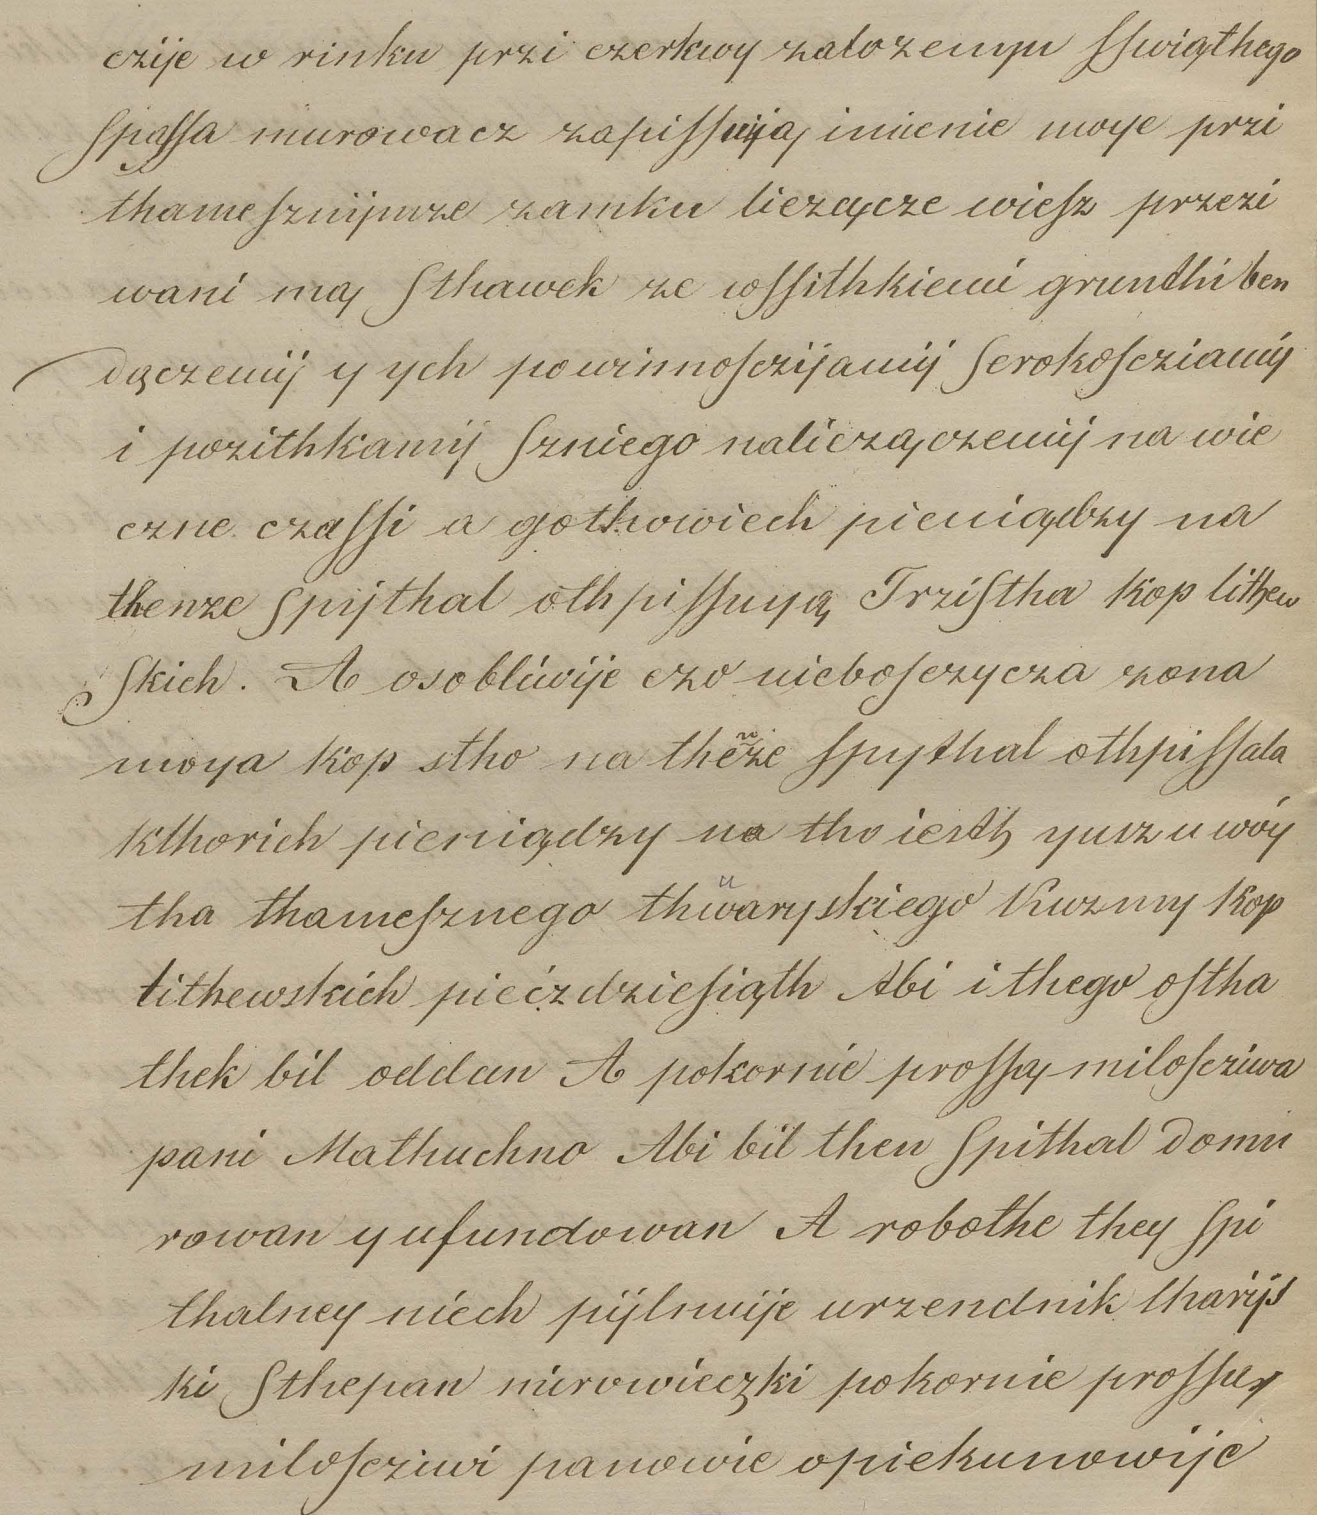 czije w rinku przi czerkwy zalozemyu sswiąthego
spassa murowacz zapissuija, imienie moye przi
thamesznijmze zamku liezącze wiesz przezi
wani mą Sthawek ze wssithkiemi grunthi ben
dączemij y ych powinnosczijamij serokoscziamij
i pozithkamij szniego naliczączemij na wie
czne czassi a gothowiech pieniądzy na
thenze spijthal othpissuyą Trzistha kop lithew
skich. A osobliwije czo niebosczycza zona
moya kop stho na thenze spythal othpissala
kthorich pieniądzy na tho iesth yusz u woy
tha thamesznego thwaryskiego Kuzmy kop
lithewskich piećzdziesiąth Abi i thego ostha
thek bil oddan A pokornie prosszą milosciwa
pani Mathuchno Abi bil then spithal domu
rowan y ufundowan A robothe they spi
thalney niech pijlnuije urzendnik tharijs
ki Sthepan mirowieczki pokornie prosszą
milosciwi panowie opiekunowije